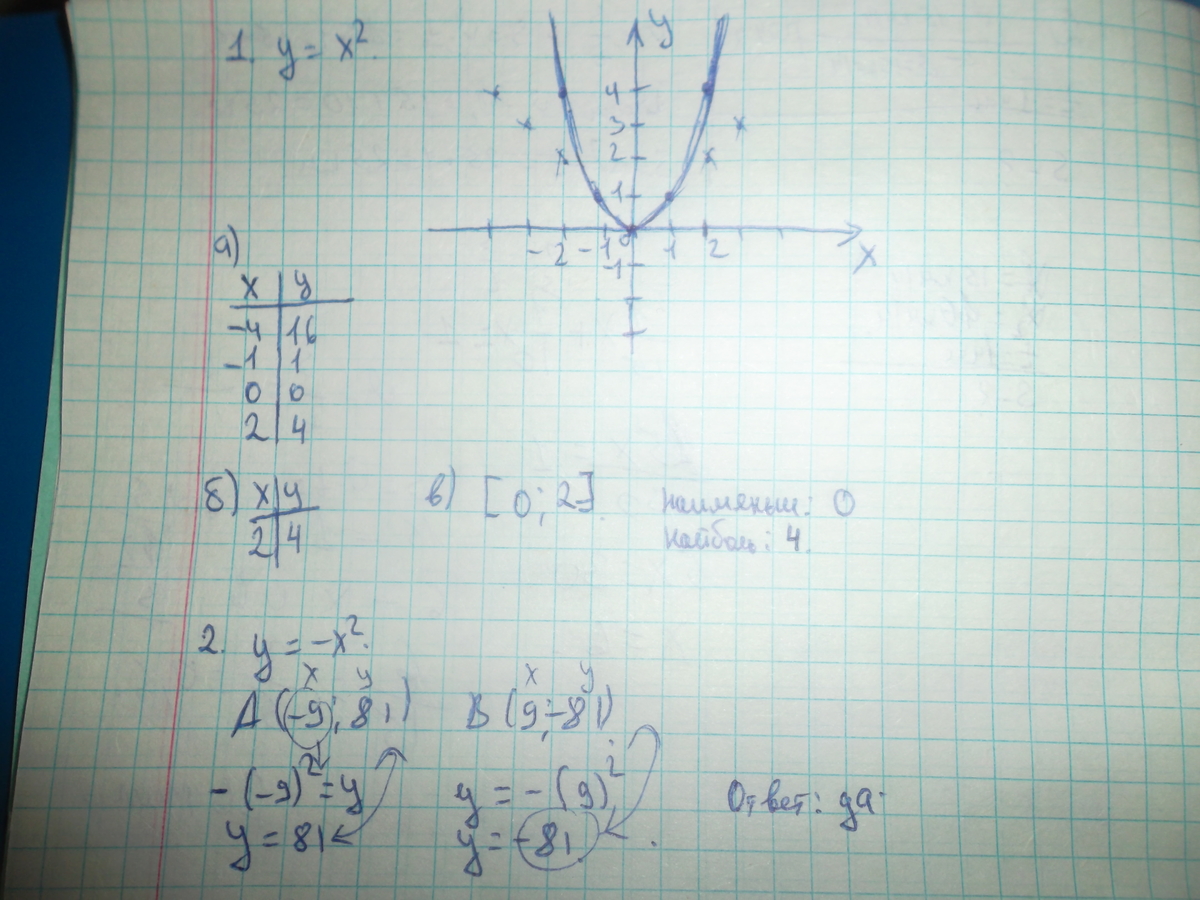 1. y = x².
y
4
3
2
1
-2 -1 0 1 2 x
-1
а)
x y
-4 16
-1 1
0 0
2 4
б) x y
2 4
в) [0; 2]. наименьш: 0
найболь: 4.
2. y = -x².
x y x y
A (-9; 81) B (9; -81)
-(-9)² = y y = -(9)²
y = 81 y = -81 .
Ответ: да.